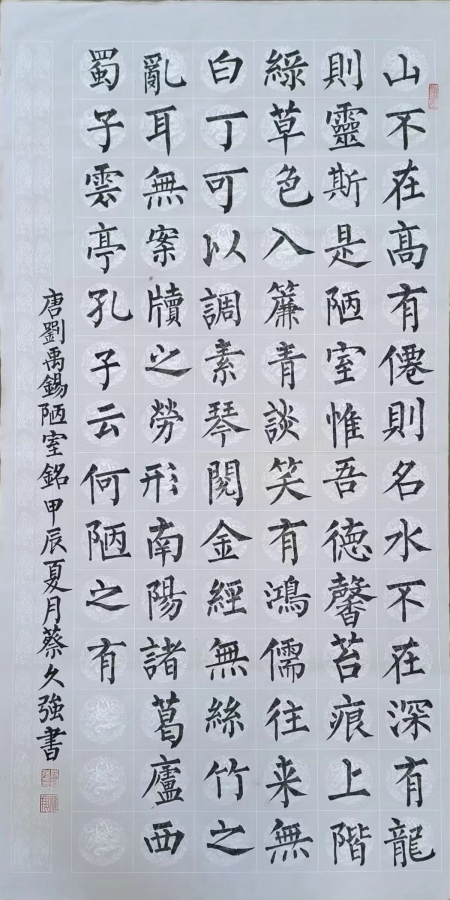 山不在髙有僊則名水不在深有龍
則靈斯是陋室惟吾德馨苔痕上階
綠草色入簾青談笑有鴻儒往来無
白丁可以調素琴閱金經無絲竹之
亂耳無案牘之勞形南陽諸葛廬西
蜀子雲亭孔子云何陋之有
唐劉禹錫陋室銘甲辰夏月蔡久強書